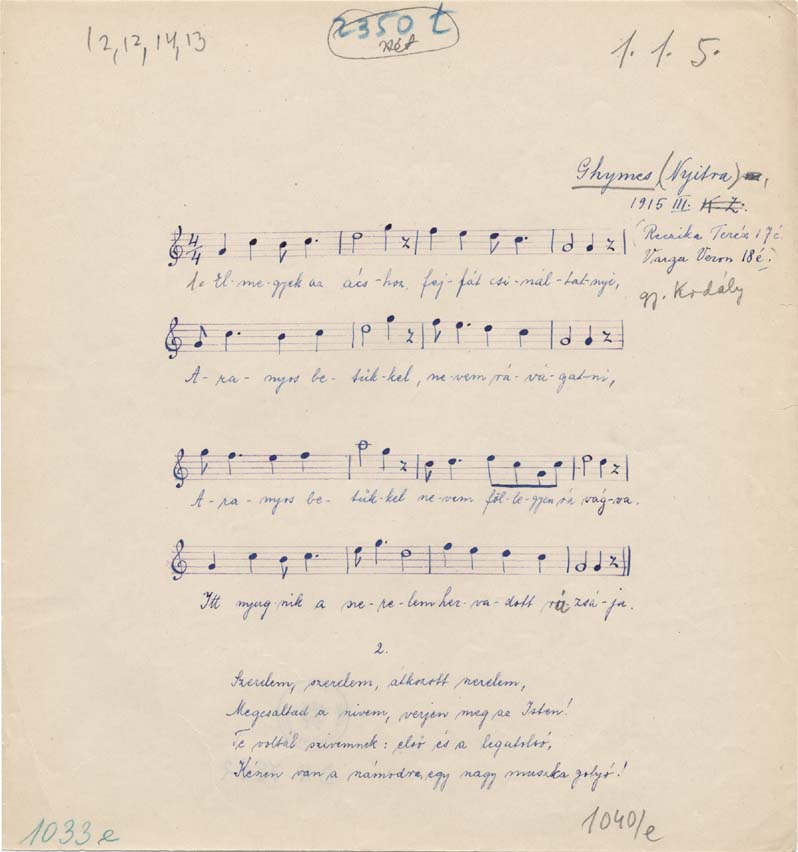 12, 12, 14, 13
2350 t
1. 1. 5.
Ghymes (Nyitra),
1915 III. K. Z.
(Reczika Teréz 17 é.
Varga Veron 18 é.)
gy. Kodály
4/4
1. El-me-gyek az ács-hoz, fej-fát csi-nál-tat-nyi,
A-ra-nyos be-tük-kel, ne-vem rá-vá-gat-ni,
A-ra-nyos be-tük-kel ne-vem föl-le-gyen rá vág-va.
Itt nyug-nik a sze-re-lem her-va-dott rú-zsá-ja.
2.
Szerelem, szerelem, átkozott szerelem,
Megcsaltad a szivem, verjen meg az Isten!
Te voltál szivemnek: első és a legutolsó,
Készen van a számodra, egy nagy muszka golyó!
1033 e
1040/e